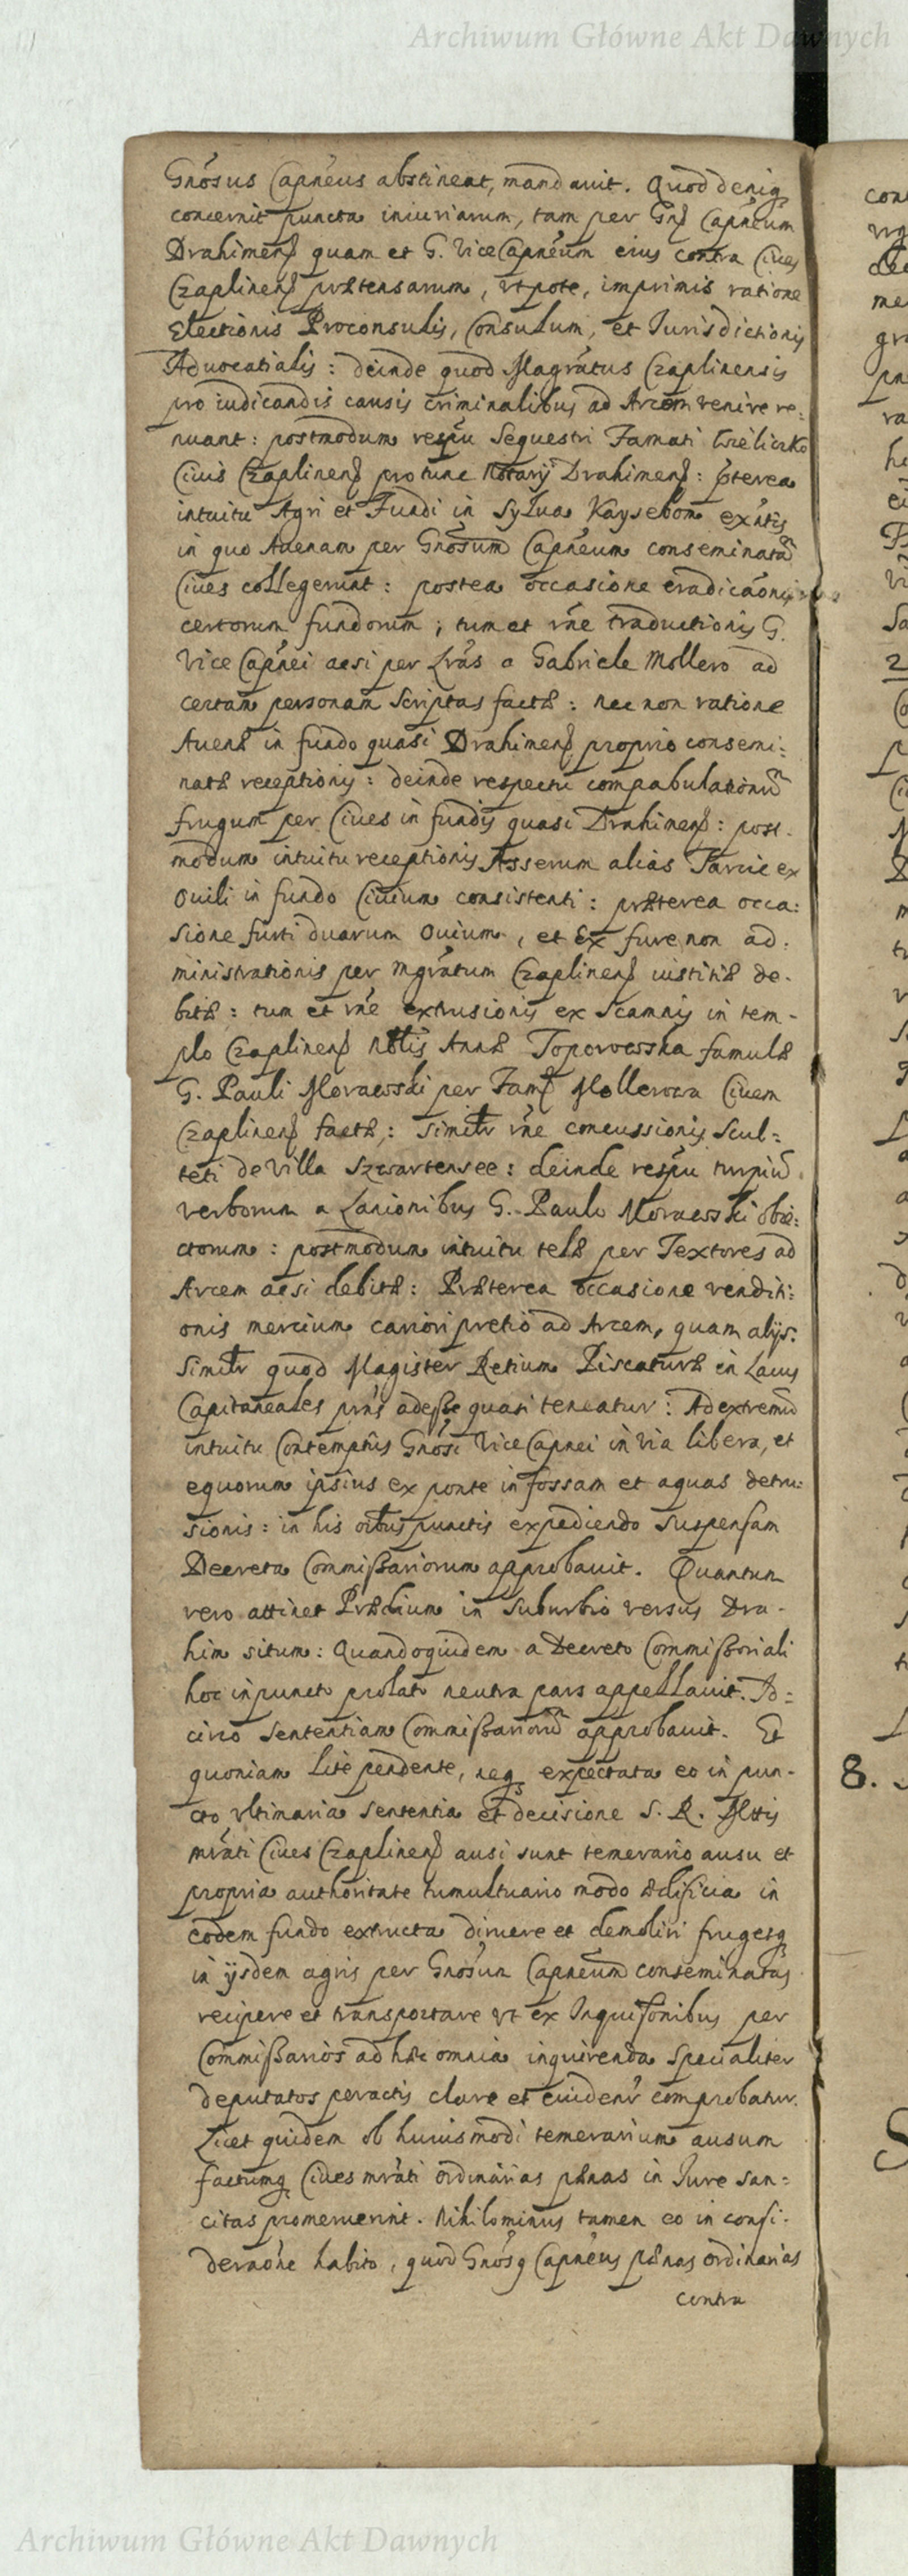 Archiwum Główne Akt Dawnych
Gnósus Capnéus abstineat, mandauit. Quod deniq
concernit puncta iniuriarum, tam per Gns Capnéum
Drahimens quam et G. Vice Capnéum eius contra Ciues
Czaplinens prætensarum, vtpote, imprimis ratione
Electionis Proconsulis, Consulum, et Iurisdictionis
Aduocatialis: deinde quod Magrátus Czaplinensis
pro iudicandis causis criminalibus ad Arcem venire re:
nuant: postmodum respu Sequestri Famati
Ciuis Czaplinens pro tunc Notarij Drahimens: pterea
intuitu Agri et Fundi in Sylua Kaysebom exntis
in quo Auenam per Gnosum Capnéum conseminatã
Ciues collegerunt: postea occasione eradicaónis
certorum fundorum; tum et rne traductionis G.
Vice Capnéi acsi per Lrás a Gabriele Mollero ad
certam personam Scriptas factæ: nec non ratione
Auenæ in fundo quasi Drahimens proprio consemi:
natæ receptionis: deinde respectu compabulationũ
frugum per Ciues in fundis quasi Drahimens: post-
modum intuitu receptionis Asserum alias Tarcic ex
Ouili in fundo Ciuium consistenti: præterea occa:
sione furti duarum Ouium, et Ex fure non ad:
ministrationis per Mgrátum Czaplinens iustitiæ de-
bitæ: tum et rné extrusionis ex Scamnis in tem-
plo Czaplinens Nblis Annæ Toporowska famulæ
G. Pauli Morawski per Fam Mollerowa Ciuem
Czaplinens factæ: Similr rné concussionis Scul=
teti de Villa Szwartensee: deinde respu turpiũ
verborum a Lanionibus G. Paulo Morawski obie:
ctorum: postmodum intuitu telæ per Textores ad
Arcem acsi debitæ: Præterea occasione venditi:
onis mercium cariori pretio ad Arcem, quam alijs:
Similr quod Magister Retium Piscaturæ in Lacus
Capitaneales prns adesse quasi teneatur: Ad extremũ
intuitu Contemptus Gnósi Vice Capnei in via libera, et
equorum ipsius ex ponte in fossam et aquas detru:
sionis: in his oibus punctis expediendo suspensam
Decreta Commissariorum approbauit. Quantum
vero attinet Prædium in Suburbio versus Dra-
him situm: Quandoquidem a Decreto Commissoriali
hoc in puncto prolato neutra pars appellauit. Id=
circo Sententiam Commissariorũ approbauit. Et
quoniam Lite pendente, neq expectata eo in pun-
cto vltimaria Sententia et decisione S. R. Mttis
mráti Ciues Czaplinens ausi sunt temerario ausu et
propria authoritate tumultuario modo ædificia in
eodem fundo extructa diruere et demoliri frugesq
in ijsdem agris per Gnósum Capnéum conseminatas
recipere et transportare vt ex Inquisonibus per
Commissarios ad hæc omnia inquirenda Specialiter
deputatos peractis clare et euidenr comprobatur.
Licet quidem ob huiusmodi temerarium ausum
factumq Ciues mráti ordinarias pænas in Iure san=
citas promeruerint. Nihilominus tamen eo in consi:
deraóne habito, quod Gnósg Capnéus pænas ordinarias
contra
8.
Archiwum Główne Akt Dawnych